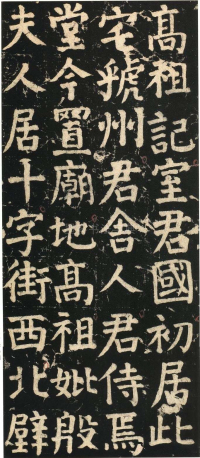 高祖記室君國初居此
宅虢州君舍人君侍焉
堂今置廟地高祖妣殷
夫人居十字街西北壁